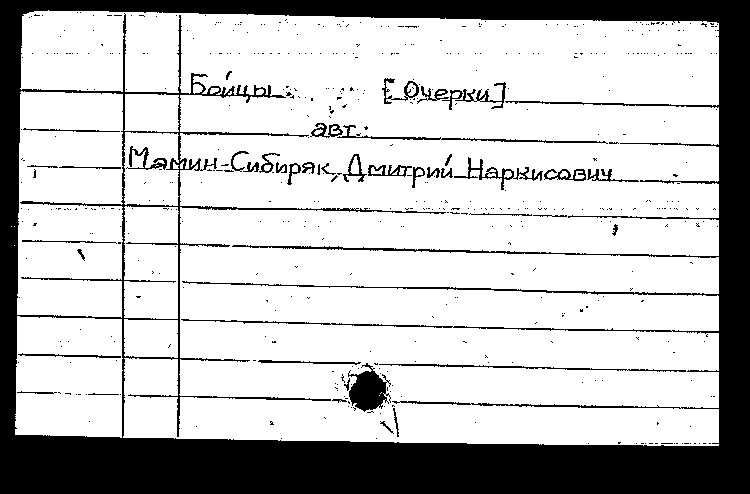 Бойцы. [Очерки]
авт.:
Мамин-Сибиряк, Дмитрий Наркисович